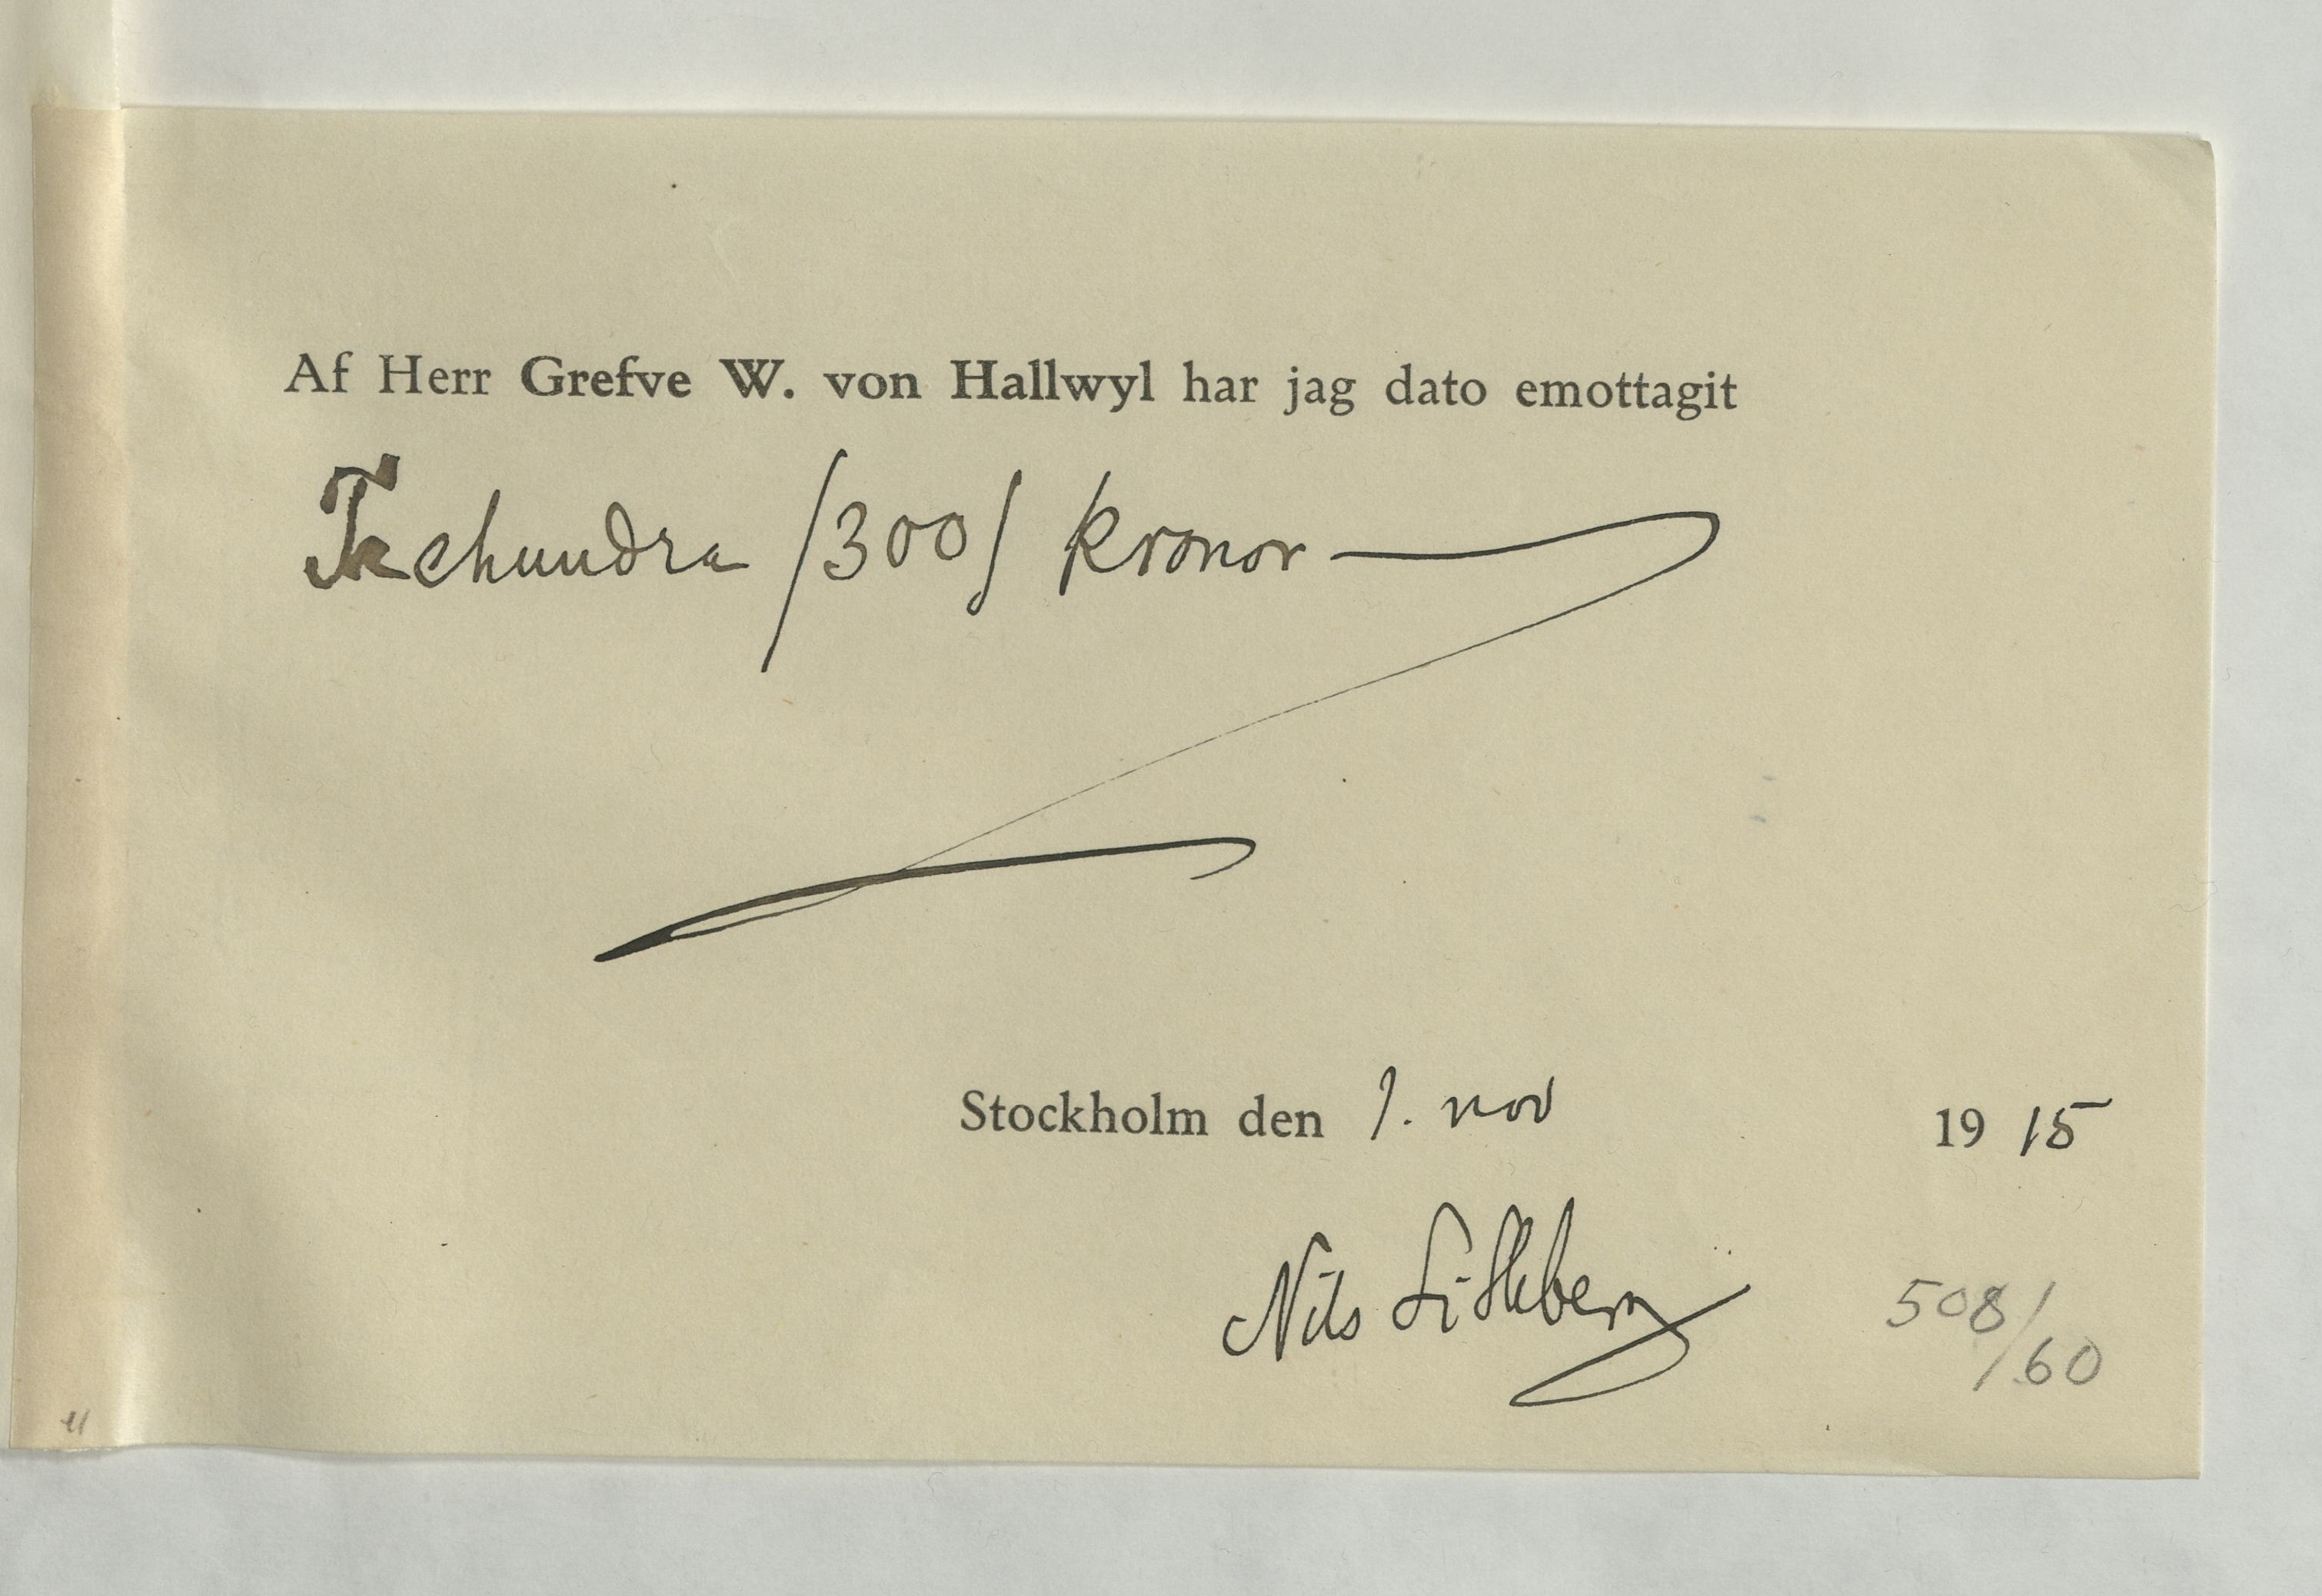 Af Herr Grefve W. von Hallwyl har jag dato emottagit
Trehundra /300/ kronor
Stockholm den 1. nov 1915
Nils Lithberg
508/60